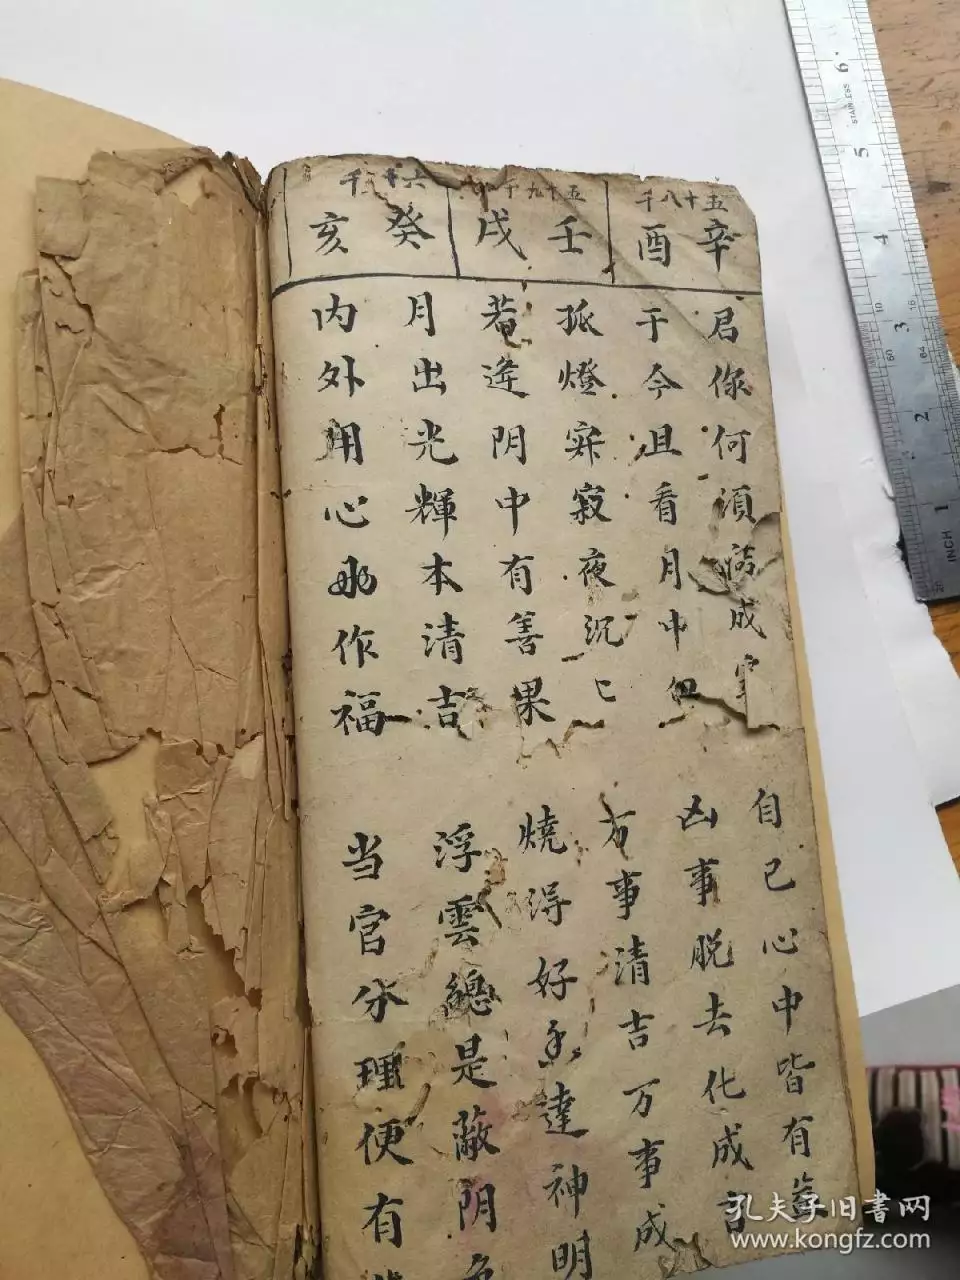 五十八千
辛酉
君你何須
成
自己心中皆有
于今且看月中
凶事脱去化成吉
五十九千
壬戌
孤燈寂寂夜沉〻
万事清吉万事成
若逢阴中有善果
燒得好香達神明
六十千
癸亥
月出光輝本清吉
浮雲總是蔽阴色
内外用心再作福
当官分理便有
6
5
4
3
2
1
STAINLESS
INCH
孔夫子旧书网
www.kongfz.com